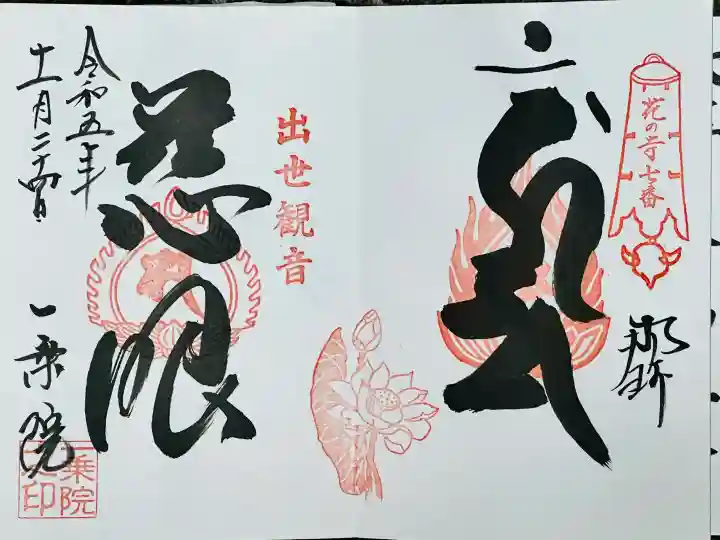 花の寺七番
出世観音
慈眼
令和五年
十一月二十四日
一乗院
一乗院
之印